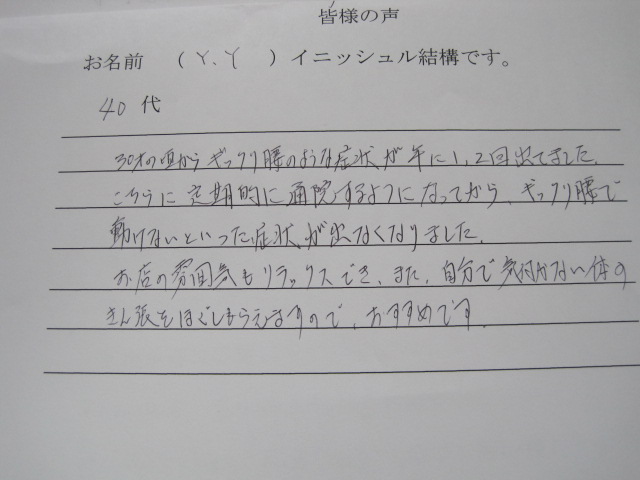 皆様の声
お名前 （Y.Y ）イニッシュル結構です。
40代
30才の頃からギックリ腰のような症状が年に1,2回出てました。
こちらに定期的に通院するようになってから、ギックリ腰で
動けないといった症状が出なくなりました。
お店の雰囲気もリラックスでき、また、自分で気付かない体の
きん張をほぐしもらえますので、おすすめです。